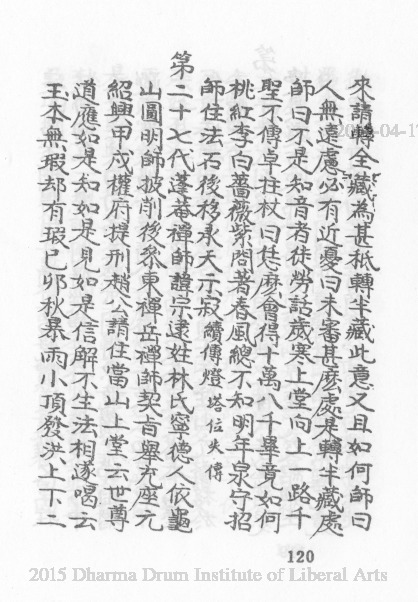 來請轉全藏為甚柢轉半藏此意又且如何師曰
人無遠慮必有近憂曰未審甚麼處是轉半藏處
師曰不是知音者徒勞話歲寒上堂向上一路千
聖不傳卓拄杖曰恁麼會得十萬八千畢竟如何
桃紅李白薔薇紫問著春風總不知明年泉守招
師住法石後移永天示寂續傳燈塔位失傳
第二十七代蓬菴禪師諱宗逮姓林氏寧德人依龜
山圓明師披削後叅東禪岳禪師契旨舉充座元
紹興甲戍權府提刑趙公請住當山上堂云世尊
道應如是知如是見如是信解不生法相遂喝云
玉本無瑕却有瑕已卯秋暴雨小頂發洪上下二
120
2015 Dharma Drum Institute of Liberal Arts